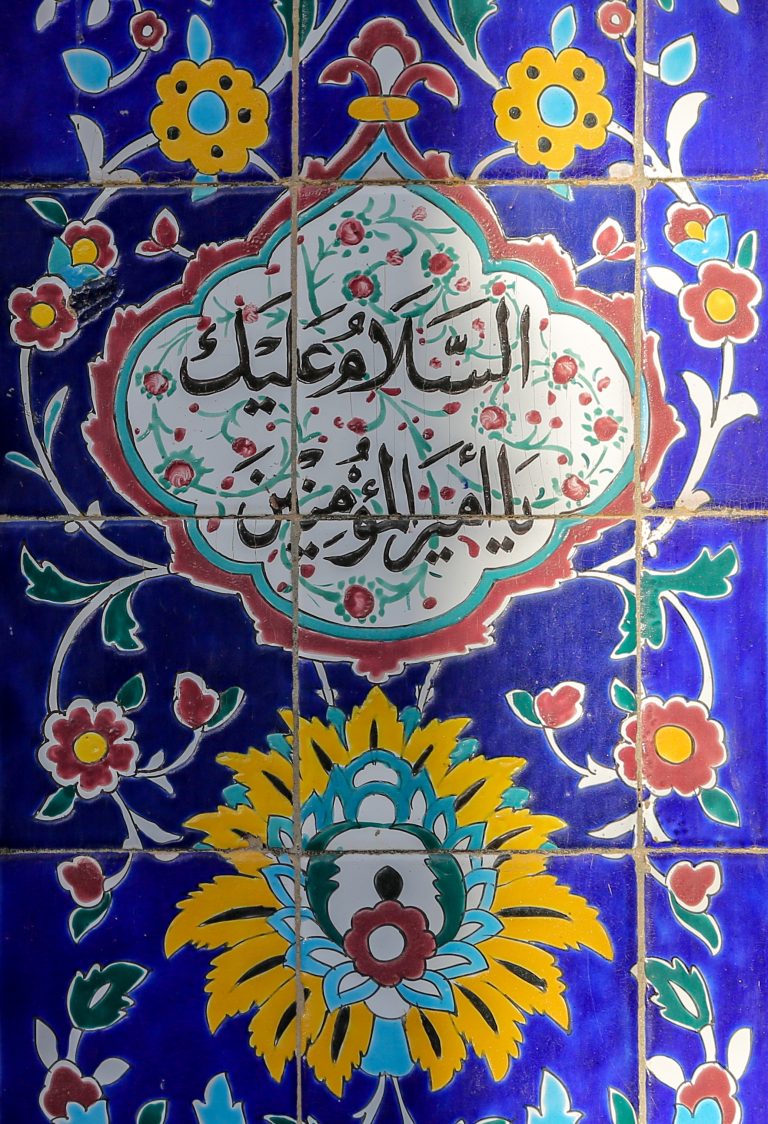 السَّلَامُ عَلَیْكَ
یَا أَمیرَ المُؤْمِنینَ